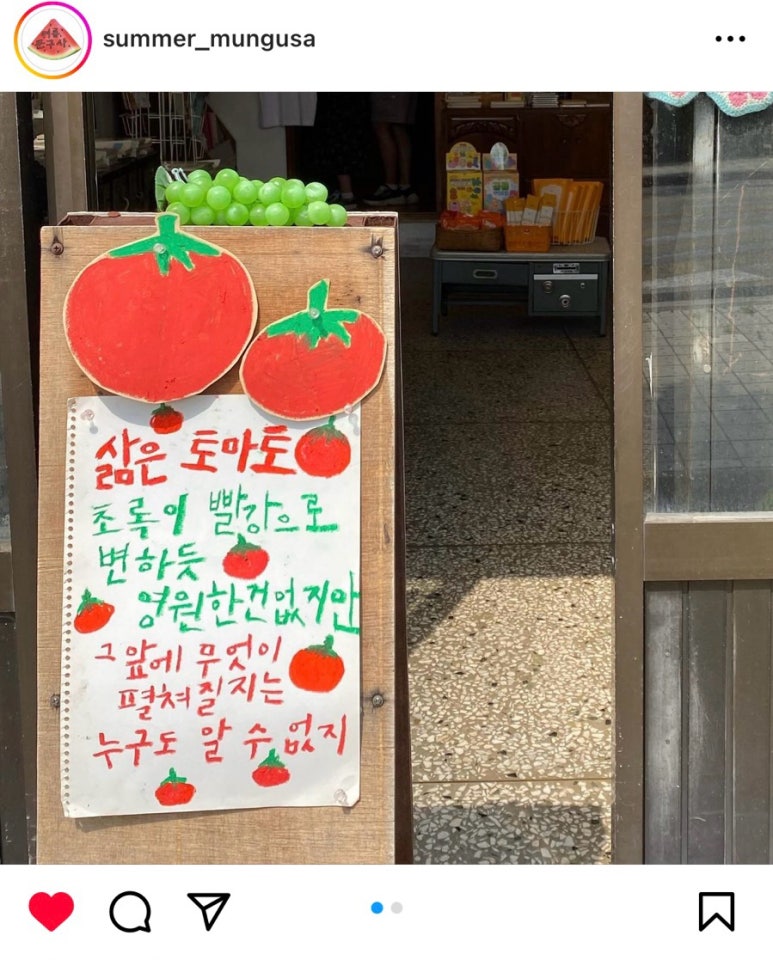 여름
문구사.
summer_mungusa
삶은 토마토
초록이 빨강으로
변하듯
영원한건없지만
그 앞에 무엇이
펼쳐질지는
누구도 알 수 없지